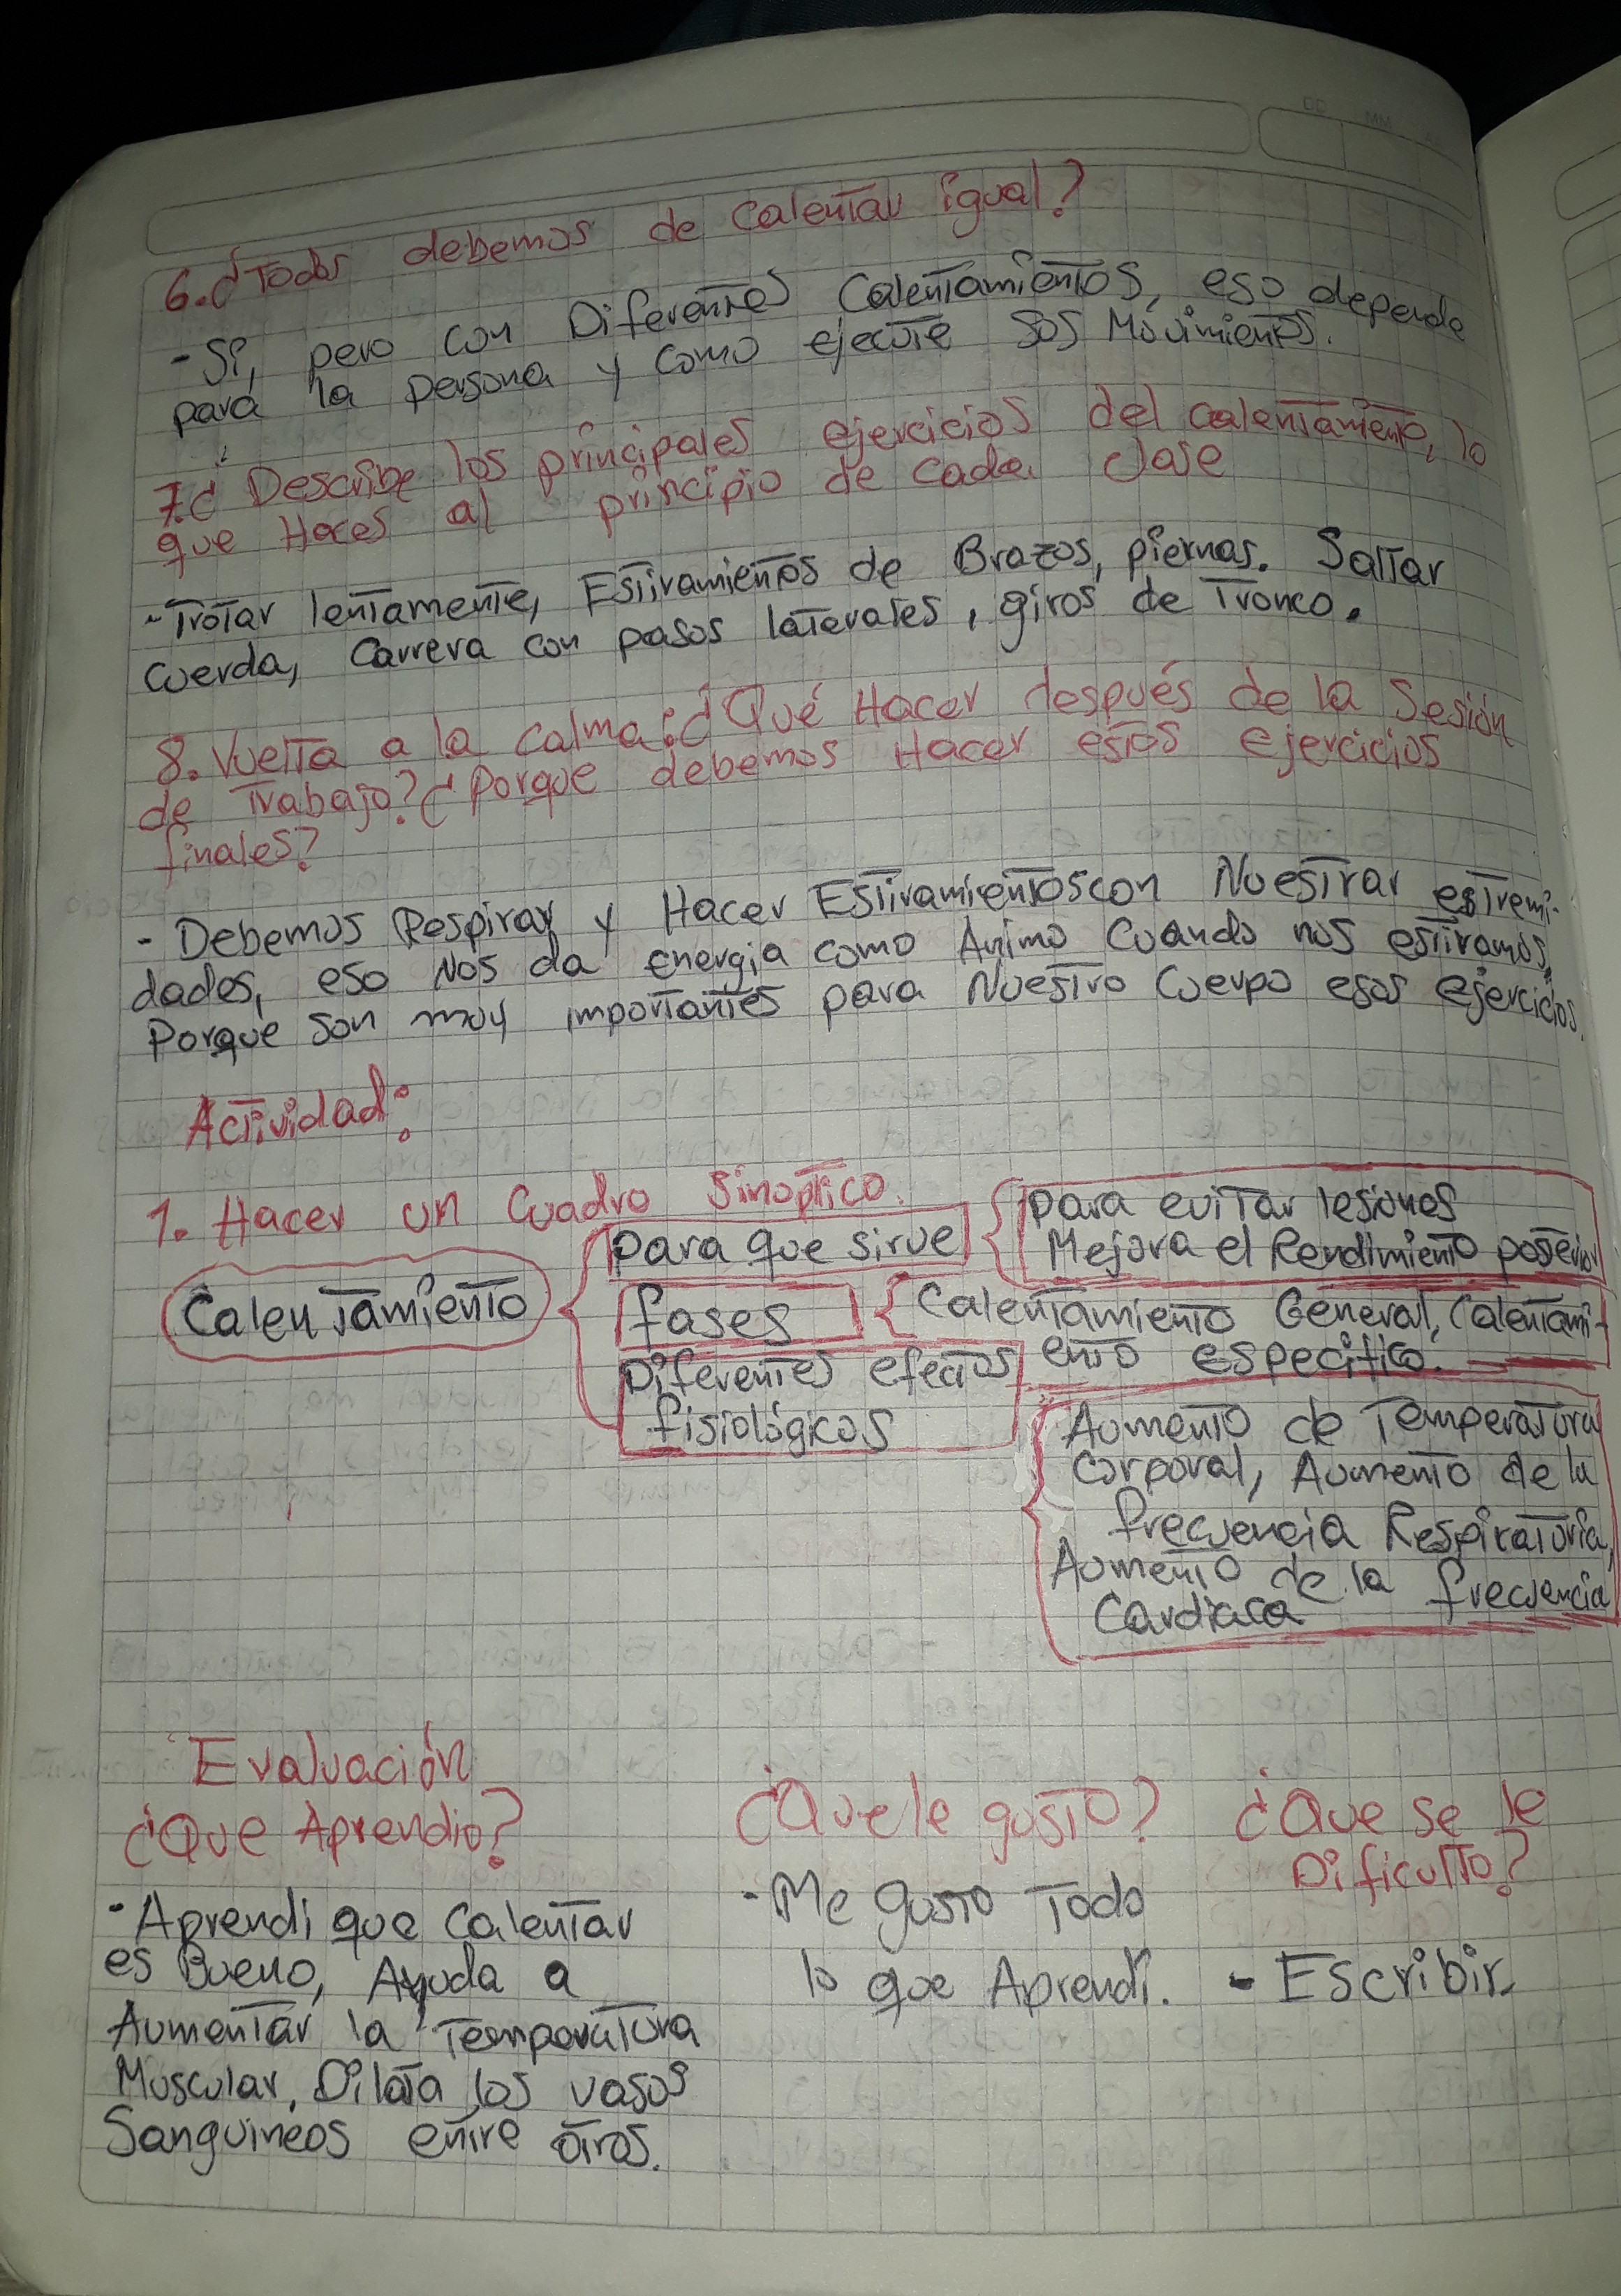 6. ¿Todos debemos de calentar igual?
- Sí, pero con Diferentes Calentamientos, eso depende
para la persona y como ejecute sus Movimientos.
7. ¿ Describe los principales ejercicios del calentamiento, lo
que Haces al principio de cada clase
- Trotar lentamente, Estiramientos de Brazos, piernas. Saltar
cuerda, Carrera con pasos laterales, giros de Tronco.
8. Vuelta a la calma: ¿Qué Hacer después de la Sesión
de Trabajo? ¿Porque debemos Hacer estos ejercicios
finales?
- Debemos Respirar y Hacer Estiramientos con Nuestrar estremi-
dades, eso Nos da energia como Animo Cuando nos estiramos,
Porque son muy importantes para Nuestro Cuerpo esos Ejercicios.
Actividad:
1. Hacer un Cuadro Sinoptico.
Calentamiento
para que sirve
para evitar lesiones
Mejora el Rendimiento posterior
fases
Calentamiento General, Calentami-
ento especifico.
Diferentes efectos
fisiológicos
Aumento de Temperatura
Corporal, Aumento de la
frecuencia Respiratoria,
Aumento de la frecuencia
Cardiaca
Evaluación
¿Que Aprendio?
- Aprendi que Calentar
es Bueno, Ayuda a
Aumentar la Temperatura
Muscular, Dilata los vasos
Sanguineos entre otros.
¿Que le gusto?
- Me gusto Todo
lo que Aprendí.
¿Que se le
Dificulto?
- Escribir.